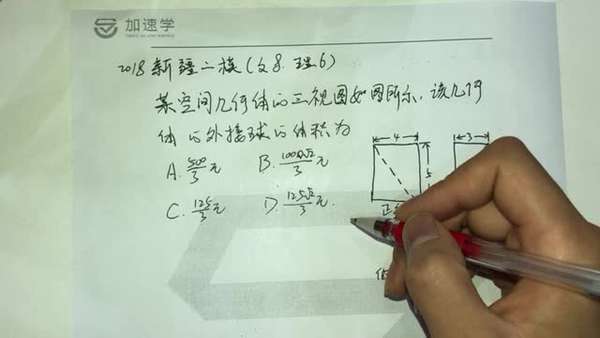 加速学
2018新疆二模(文8.理6)
某空间几何体的三视图如图所示,该几何
体的外接球的体积为
4
3
A. 500/3 π B. 1000√2/3 π
5
C. 125/3 π D. 125√2/3 π.
正